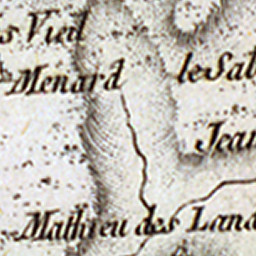 s Vieil
Menard
le Sal
Jean
Mathieu des Land